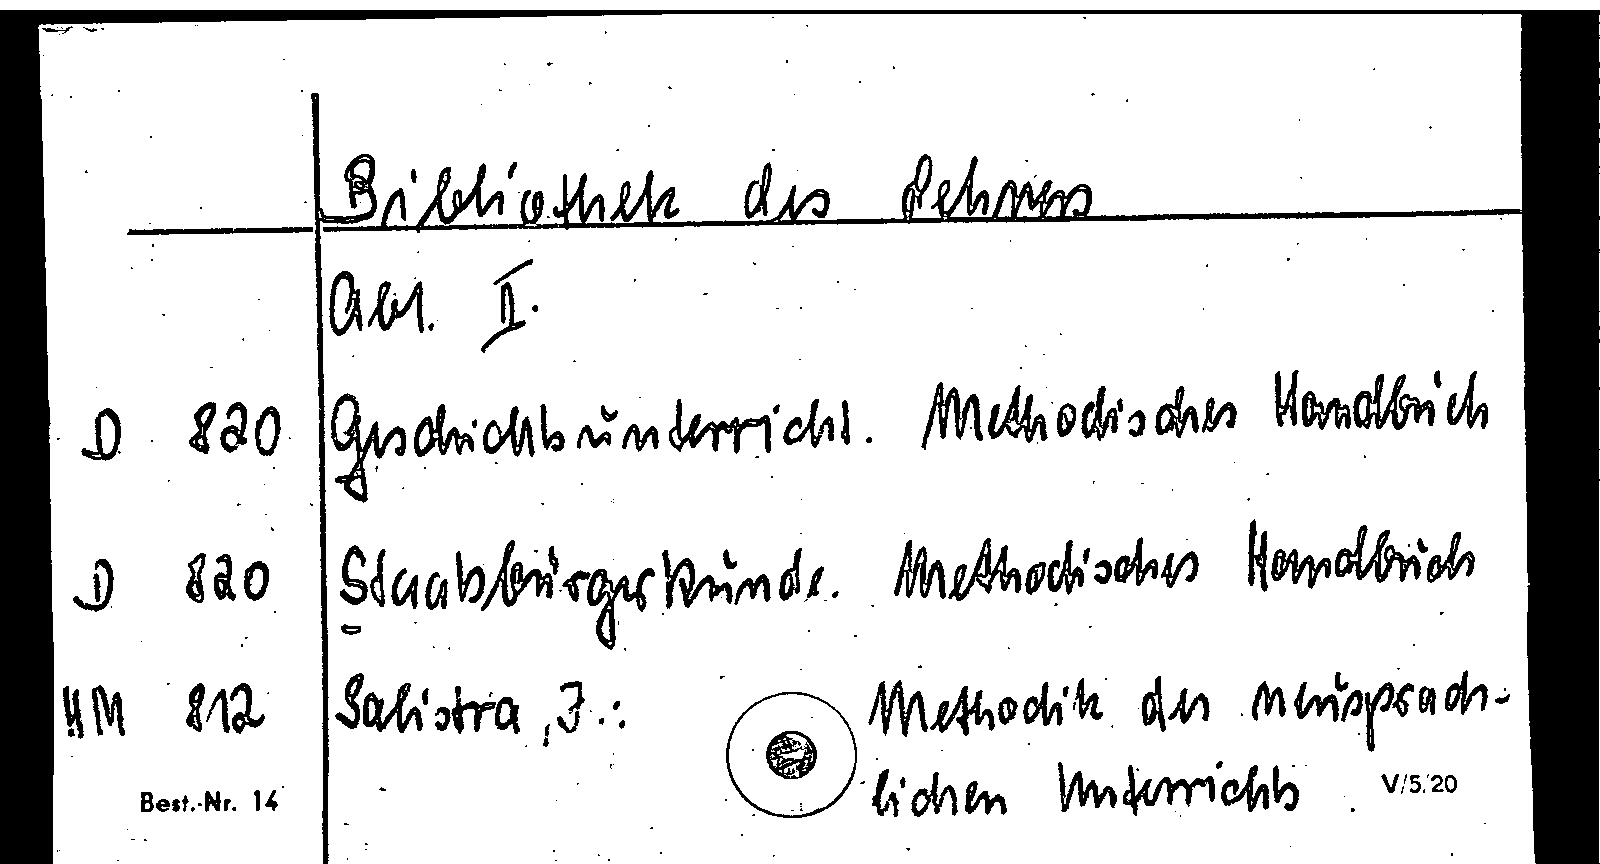 Bibliothek des Lehrers
Abt. II.
D 820 Geschichtsunterricht. Methodisches Handbuch
D 820 Staatsbürgerkunde. Methodisches Handbuch
HM 812 Salistra, I.: Methodik des neusprach-
lichen Unterrichts
Best.-Nr. 14 V/5/20